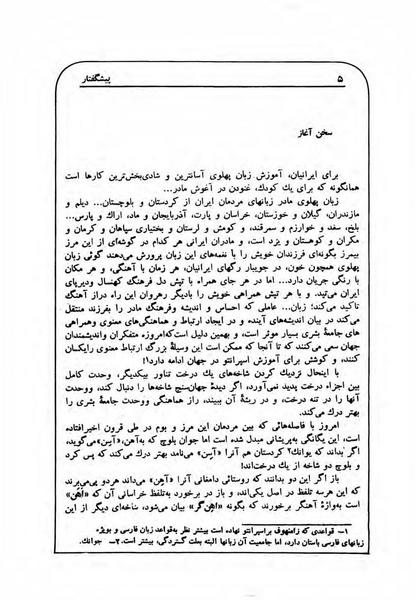 ۵ پیشگفتار
سخن آغاز
برای ایرانیان، آموزش زبان پهلوی آسانترین و شادی‌بخش‌ترین کارها است
همانگونه که برای یك کودك، غنودن در آغوش مادر...
زبان پهلوی مادر زبانهای مردمان ایران از کردستان و بلوچستان... دیلم و
مازندران، گیلان و خوزستان، خراسان و پارت، آذربایجان و ماد، اراك و پارس...
بلخ، سغد و خوارزم و سمرقند، و کومش و لرستان و بختیاری سپاهان و کرمان و
مکران و کوهستان و یزد است، و مادران ایرانی هر کدام در گوشه‌ای از این مرز
بیمرز بگونه‌ای فرزندان خویش را با نغمه‌های این زبان پرورش می‌دهند گوئی زبان
پهلوی همچون خون، در جویبار رگهای ایرانیان، هر زمان با آهنگی، و هر مکان
با رنگی جریان دارد... اما در هر جای همراه با تپش دل فرهنگ کهنسال ودیرپای
ایران می‌تپد. و با هر تپش همراهی خویش را بادیگر رهروان این راه دراز آهنگ
تاکید می‌کند؛ زبان... عاملی که احساس و اندیشه وفرهنگ مادر را بفرزند منتقل
می‌کند در بیان اندیشه‌های آینده و در ایجاد ارتباط و هماهنگی‌های معنوی وهمراهی
های جامعهٔ بشری بسیار موثر است، و بهمین دلیل است‌که‌امروزه متفکران واندیشمندان
جهان سعی می‌کنند که تا آنجا که ممکن است این وسیلهٔ بزرگ ارتباط معنوی رایکسان
کنند، و کوشش برای آموزش اسپرانتو در جهان ادامه دارد(۱)
با اینحال نزدیك کردن شاخه‌های یك درخت تناور بیکدیگر، وحدت کامل
بین اجزاء درخت پدید نمی‌آورد، اگر دیدهٔ جهان‌سنج شاخه‌ها را دنبال کند، ووحدت
آنها را در تنه درخت، و در ریشهٔ آن ببیند، راز هماهنگی ووحدت جامعهٔ بشری را
بهتر درك می‌کند.
امروز با فاصله‌هائی که بین مردمان این مرز و بوم در طی قرون اخیرافتاده
است، این یگانگی به‌پریشانی مبدل شده است اما جوان بلوچ که به‌آهن، «آسِن»می‌گوید،
اگر بداند که یوانك؟ کردستان هم آنرا «آسِن» می‌نامد بهتر درك می‌کند که پس کرد
و بلوچ دو شاخه از یك درخت‌اند!
باز اگر این دو بدانند که روستائی دامغانی آنرا «آهِن» می‌داند هردو پی‌می‌برند
که این هرسه تلفظ در اصل یکی‌اند، و باز در برخورد به‌تلفظ خراسانی آن که «آهَن»
است به‌واژهٔ آهنگر برخورند که بگونه «آهِن‌گر» بیان می‌شود، شاخه‌ای دیگر از این
۱— قواعدی که زامنهوف براسپرانتو نهاده است بیشتر نظر به‌قواعد زبان فارسی و بویژه
زبانهای فارسی باستان دارد، اما جامعیت آن زبانها البته بعلت گستردگی، بیشتر است. ۲— جوانك.